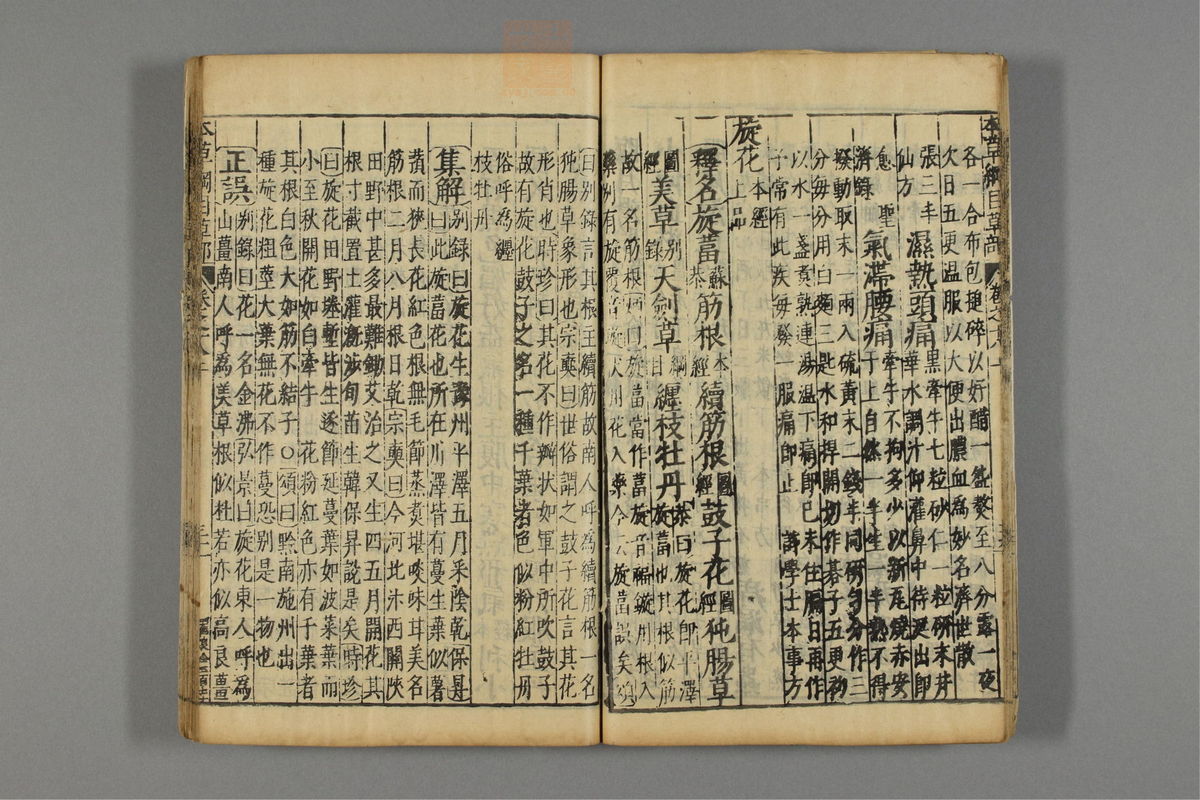 各一合布包搥碎以好醋一盞熬至八分露一夜
次日五更溫服以大便出膿血為妙名濟世散
張三丰仙方
濕熱頭痛黑牽牛七粒砂仁一粒研末井華水調汁仰灌鼻中待涎出即愈聖濟錄
氣滯腰痛牽牛不拘多少以新瓦燒赤安于上自然一半生一半熟不得
撥動取末一兩入硫黃末二錢半同研勻分作三
分每分用白麵三匙水和捍開切作碁子五更初
以水一盞煑熟連湯溫下痛即已未住隔日再作
子常有此疾每發一服痛即止許學士本事方
旋花本經上品
釋名旋葍蘇恭筋根本經續筋根圖經鼓子花圖經㹠腸草
圖經美草別錄天劍草綱目纏枝牡丹恭曰旋花即平澤旋葍也其根似筋
故一名筋根炳曰旋葍當作葍旋音福鏇用根入
藥別有旋覆音旋伏用花入藥今云旋葍誤矣頌
曰別錄言其根主續筋故南人呼為續筋根一名
㹠腸草象形也宗奭曰世俗謂之鼓子花言其花
形肖也時珍曰其花不作瓣狀如軍中所吹鼓子
故有旋花鼓子之名一種千葉者色似粉紅牡丹
俗呼為纏
枝牡丹
集解別錄曰旋花生豫州平澤五月采陰乾保昇曰此旋葍花也所在川澤皆有蔓生葉似薯
蕷而狹長花紅色根無毛節蒸煑堪啖味甘美名
筋根二月八月采根日乾宗奭曰今河北汴西關陝
田野中甚多最難鋤艾治之又生四五月開花其
根寸截置土灌漑涉旬苗生韓保昇說是矣時珍
曰旋花田野塍塹皆生逐節延蔓葉如波菜葉而
小至秋開花如白牽牛花粉紅色亦有千葉者
其根白色大如筋不結子○頌曰黔南施州出一
種旋花粗莖大葉無花不作蔓恐別是一物也
正誤別錄曰花一名金沸弘景曰旋花東人呼為山薑南人呼為美草根似杜若亦似高良薑